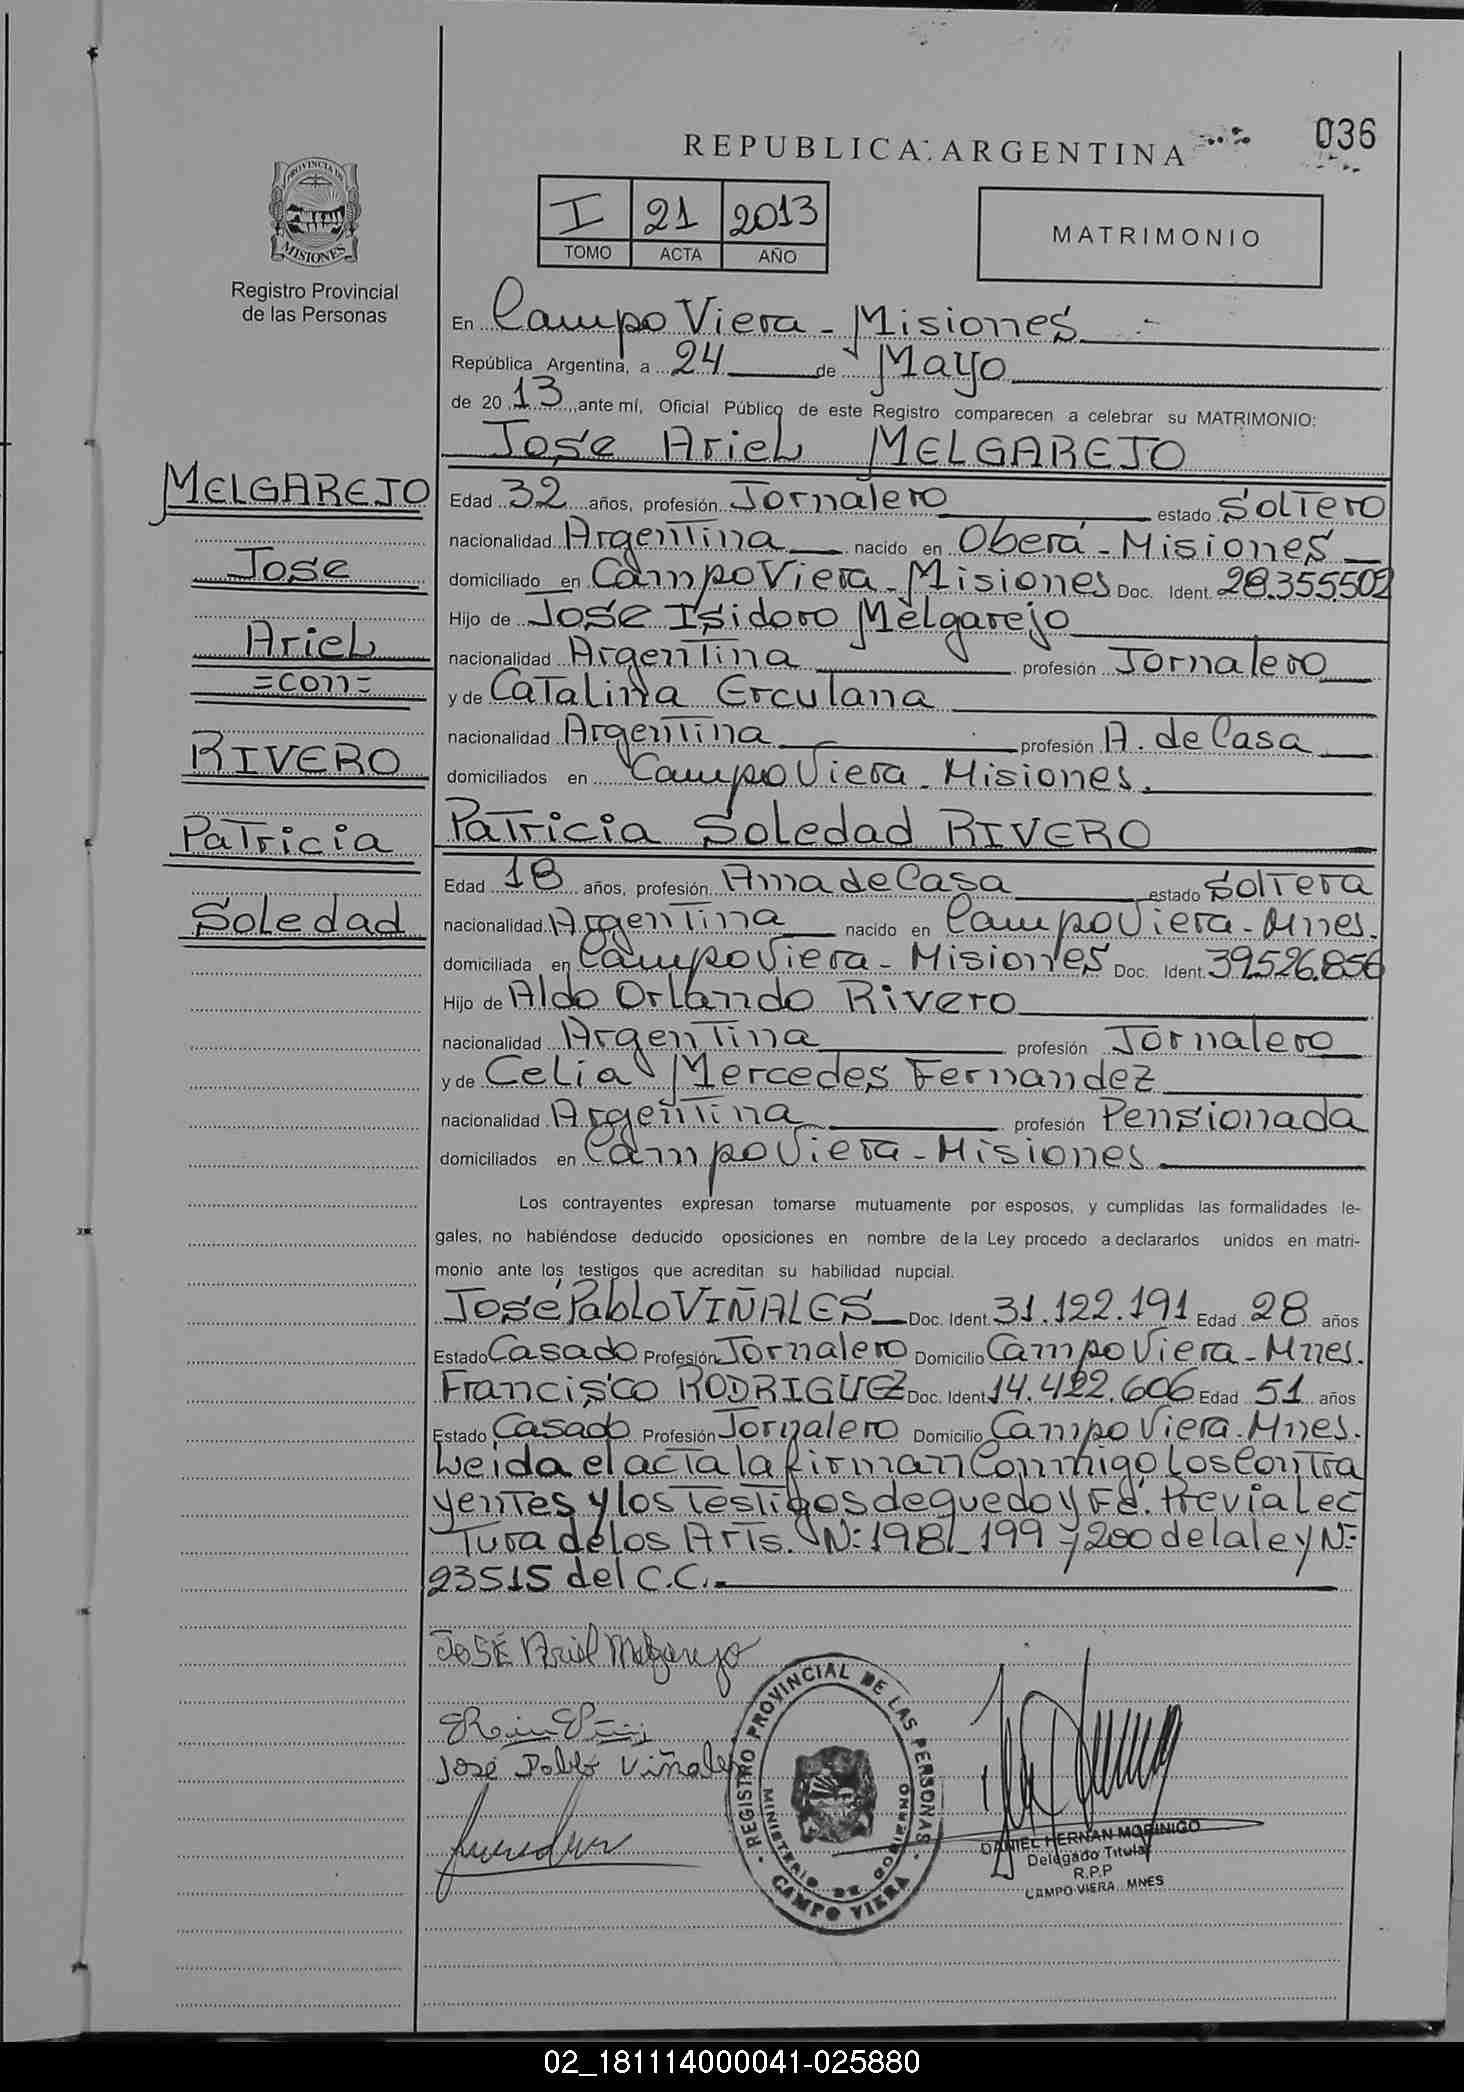 036
REPUBLICA ARGENTINA
PROVINCIA DE
MISIONES
Registro Provincial
de las Personas
I 21 2013
TOMO ACTA AÑO
MATRIMONIO
En Campo Viera - Misiones
República Argentina, a 24 de Mayo
de 20 13 ante mí, Oficial Público de este Registro comparecen a celebrar su MATRIMONIO:
Jose Ariel MELGAREJO
MELGAREJO
Jose
Ariel
=con=
RIVERO
Patricia
Soledad
Edad 32 años, profesión Jornalero estado Soltero
nacionalidad Argentina nacido en Oberá - Misiones
domiciliado en Campo Viera - Misiones Doc. Ident. 28.355.502
Hijo de Jose Isidoro Melgarejo
nacionalidad Argentina profesión Jornalero
y de Catalina Erculana
nacionalidad Argentina profesión A. de Casa
domiciliados en Campo Viera - Misiones.
Patricia Soledad RIVERO
Edad 18 años, profesión Ama de Casa estado Soltera
nacionalidad Argentina nacido en Campo Viera - Mnes.
domiciliada en Campo Viera - Misiones Doc. Ident. 39.526.856
Hijo de Aldo Orlando Rivero
nacionalidad Argentina profesión Jornalero
y de Celia Mercedes Fernandez
nacionalidad Argentina profesión Pensionada
domiciliados en Campo Viera - Misiones
Los contrayentes expresan tomarse mutuamente por esposos, y cumplidas las formalidades le-
gales, no habiéndose deducido oposiciones en nombre de la Ley procedo a declararlos unidos en matri-
monio ante los testigos que acreditan su habilidad nupcial.
José Pablo VIÑALES Doc. Ident. 31.122.191 Edad 28 años
Estado Casado Profesión Jornalero Domicilio Campo Viera - Mnes.
Francisco RODRIGUEZ Doc. Ident. 14.422.606 Edad 51 años
Estado Casado Profesión Jornalero Domicilio Campo Viera. Mnes.
Leida el acta la firman Conmigo Los Contra
yentes y los Testigos de quedo y Fé. Previa Lec
Tura de los Arts. Nº 198 - 199 y 200 de la ley Nº
23515 del C.C.
José Ariel Melgarejo
José Pablo Viñales
REGISTRO PROVINCIAL DE LAS PERSONAS
MINISTERIO DE GOBIERNO
CAMPO VIERA
DANIEL HERNAN MORINIGO
Delegado Titular
R.P.P
CAMPO VIERA MNES
02_181114000041-025880